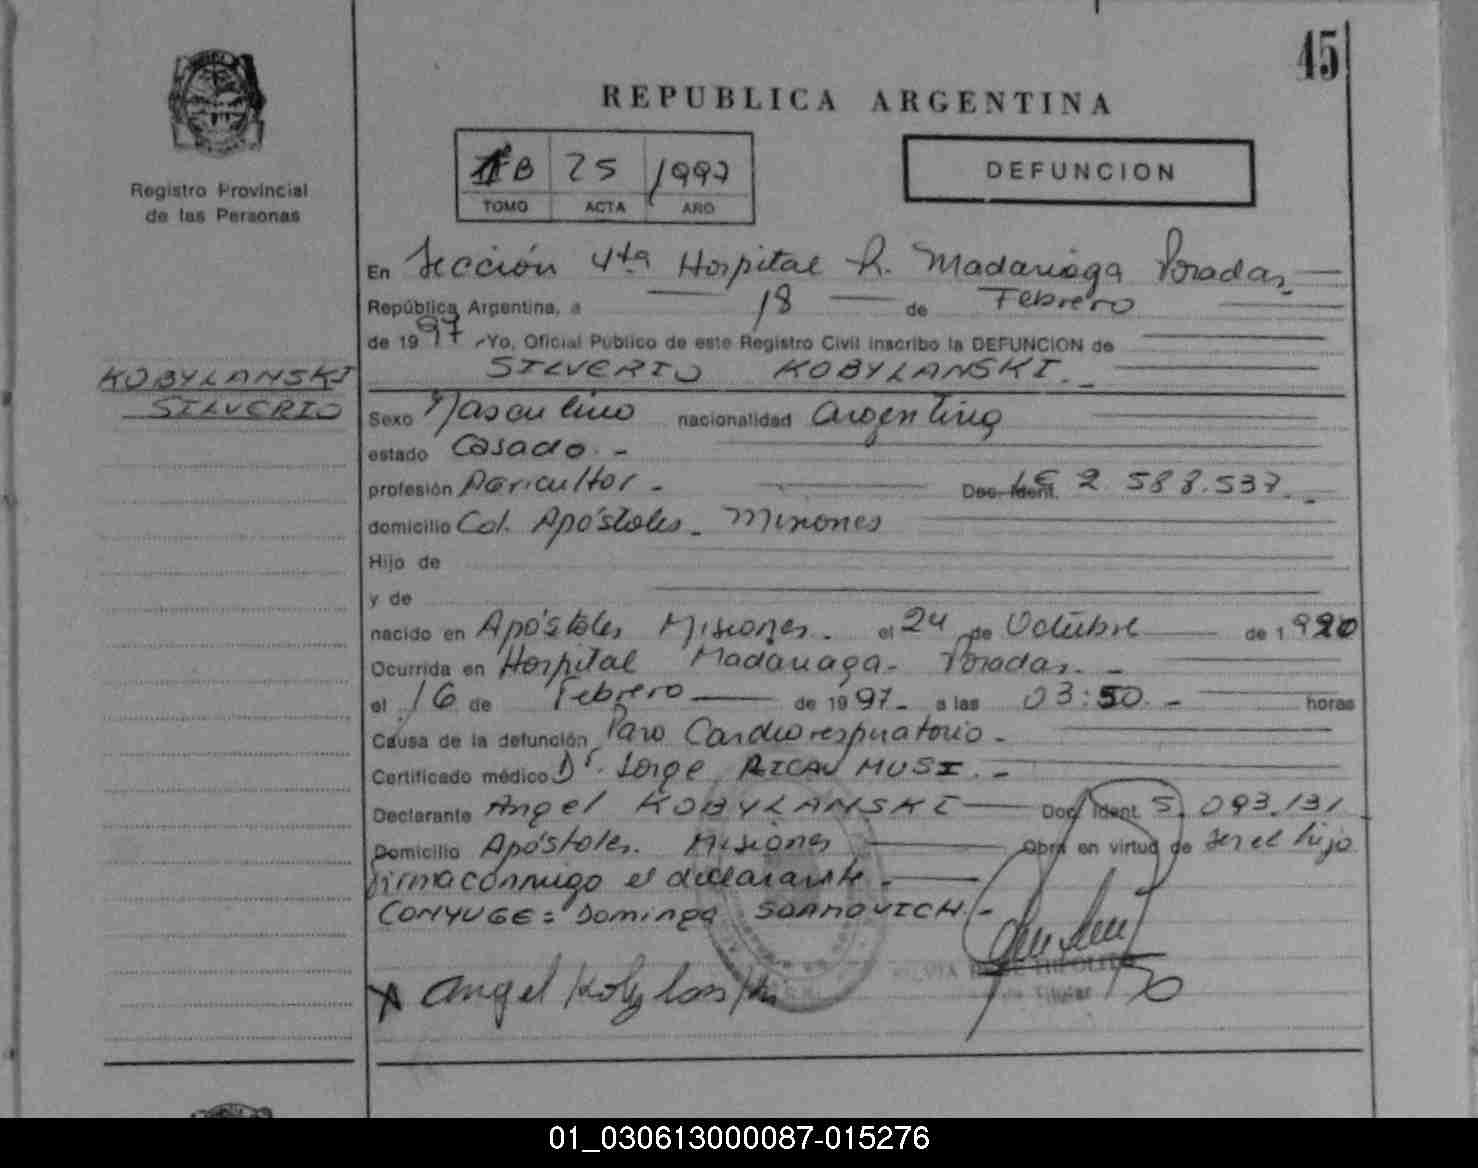 45
REPUBLICA ARGENTINA
1ºB 25 1997
TOMO ACTA AÑO
DEFUNCION
Registro Provincial
de las Personas
En Sección 4ta Hospital R. Madariaga Posadas
República Argentina, a 18 de Febrero
de 1997 Yo, Oficial Público de este Registro Civil inscribo la DEFUNCION de
SILVERIO KOBYLANSKI.
KOBYLANSKI
SILVERIO
Sexo Masculino nacionalidad argentina
estado Casado.-
profesión Agricultor - Doc. Ident. LE 2.583.537.-
domicilio Col. Apóstoles - Misiones
Hijo de
y de
nacido en Apóstoles Misiones. el 24 de Octubre de 1920
Ocurrida en Hospital Madariaga - Posadas. -
el 16 de Febrero de 1997 - a las 03:50. - horas
Causa de la defunción Paro Cardiorespiratorio -
Certificado médico Dr. Jorge MUSI. -
Declarante Angel KOBYLANSKI Doc. Ident. 5.093.131
Domicilio Apóstoles. Misiones Obra en virtud de ser el hijo
firma conmigo el declarante. -
CONYUGE = Dominga -
Angel Kobylanski
Titular
01_030613000087-015276